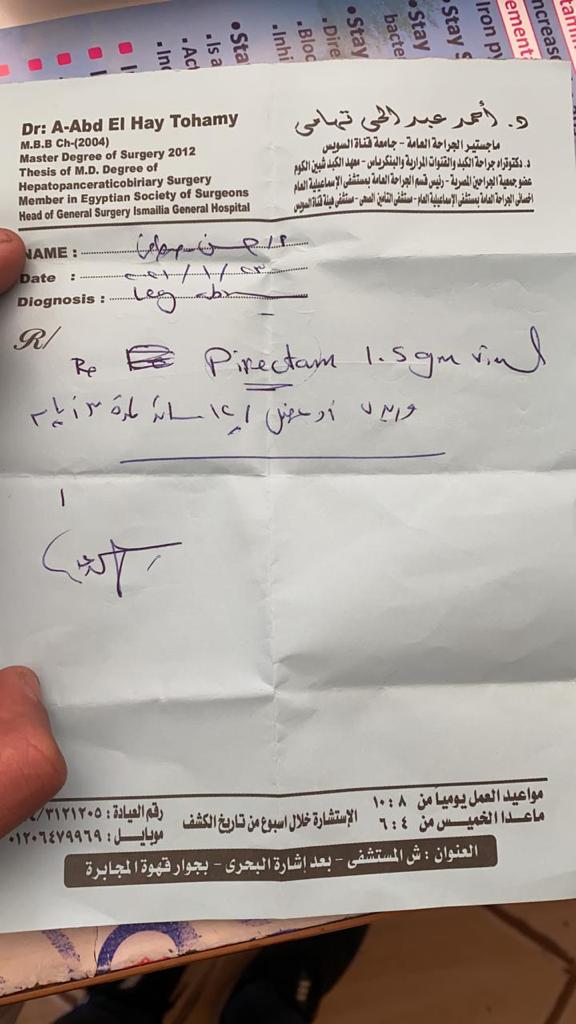 •Sta
• Is a
• Act
•Stay
•Dire
•Bloc
•Inhi
•Stay
bacte
•Stay S
Iron py
Dr: A-Abd El Hay Tohamy
M.B.B Ch-(2004)
Master Degree of Surgery 2012
Thesis of M.D. Degree of
Hepatopanceraticobiriary Surgery
Member in Egyptian Society of Surgeons
Head of General Surgery Ismailia General Hospital
د. أحمد عبد الحى تهامى
ماجستير الجراحة العامة - جامعة قناة السويس
د. دكتوراه جراحة الكبد والقنوات المرارية والبنكرياس - معهد الكبد شبين الكوم
عضو جمعية الجراحين المصرية - رئيس قسم الجراحة العامة بمستشفى الإسماعيلية العام
أخصائى الجراحة العامة بمستشفى الإسماعيلية العام - مستشفى التأمين الصحى - مستشفى هيئة قناة السويس
NAME :
Date :
Diognosis : Leg
R/
Rp Pirectam 1.5 gm vial
وريد أو عضل / ١٢ ساعة لمدة ٣ أيام
مواعيد العمل يومياً من ٨ : ١٠
ماعدا الخميس من ٤ : ٦
الإستشارة خلال اسبوع من تاريخ الكشف
رقم العيادة : ٣١٢١٢٠٥
موبايل : ٠١٢٠٦٤٧٩٩٦٩
العنوان : ش المستشفى - بعد إشارة البحرى - بجوار قهوة المجابرة